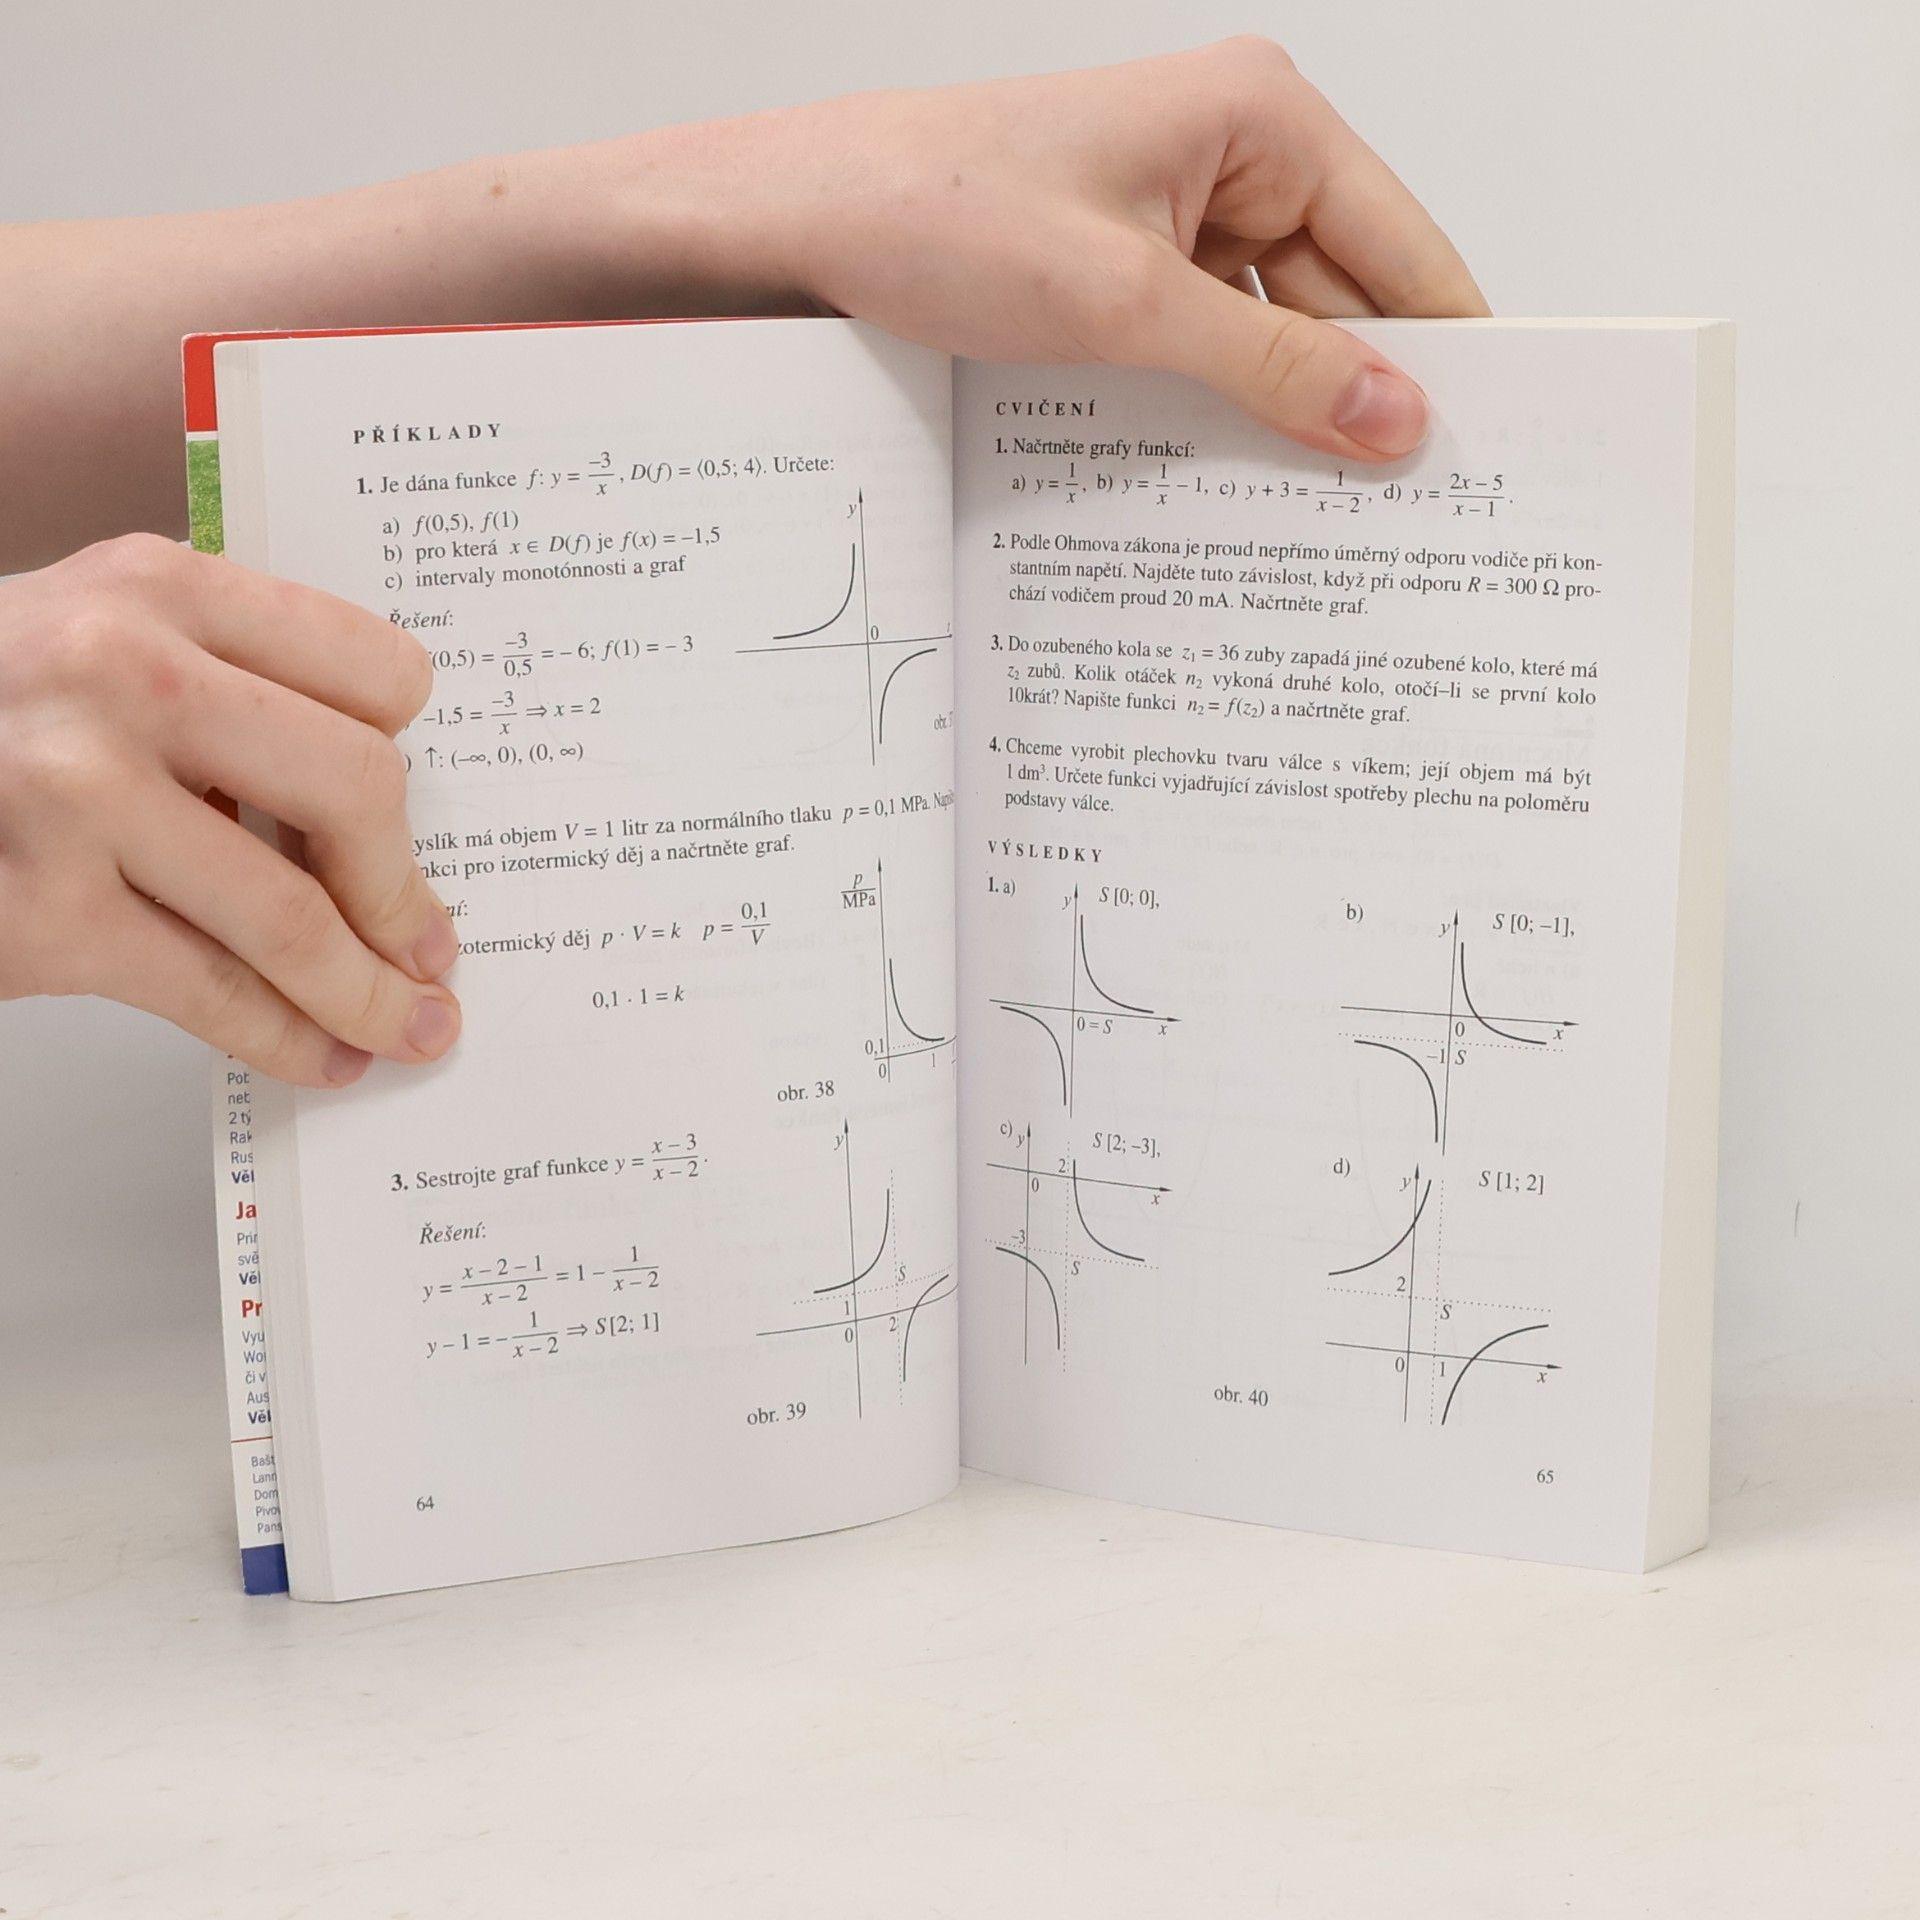 PŘÍKLADY
1. Je dána funkce f: y = −3/x, D(f) = ⟨0,5; 4⟩. Určete:
a) f(0,5), f(1)
b) pro která x ∈ D(f) je f(x) = −1,5
c) intervaly monotónnosti a graf
Řešení:
(0,5) = −3/0,5 = − 6; f(1) = − 3
−1,5 = −3/x ⇒ x = 2
) ↑: (−∞, 0), (0, ∞)
y
0
obr.
yslík má objem V = 1 litr za normálního tlaku p = 0,1 MPa.
nkci pro izotermický děj a načrtněte graf.
ní:
zotermický děj p · V = k p = 0,1/V
0,1 . 1 = k
p/MPa
0,1
0
1
obr. 38
3. Sestrojte graf funkce y = x − 3/x − 2.
Řešení:
y = x − 2 − 1/x − 2 = 1 − 1/x − 2
y − 1 = − 1/x − 2 ⇒ S[2; 1]
y
S
1
0
2
obr. 39
64
Pot
net
2 tý
Rak
Rus
Věl
Ja
Prir
svě
Věl
Pr
Vyu
Wo
či v
Aus
Věl
Bašt
Lann
Dom
Pivo
Pans
CVIČENÍ
1. Načrtněte grafy funkcí:
a) y = 1/x, b) y = 1/x − 1, c) y + 3 = 1/x − 2, d) y = 2x − 5/x − 1.
2. Podle Ohmova zákona je proud nepřímo úměrný odporu vodiče při kon-
stantním napětí. Najděte tuto závislost, když při odporu R = 300 Ω pro-
chází vodičem proud 20 mA. Načrtněte graf.
3. Do ozubeného kola se z₁ = 36 zuby zapadá jiné ozubené kolo, které má
z₂ zubů. Kolik otáček n₂ vykoná druhé kolo, otočí–li se první kolo
10krát? Napište funkci n₂ = f(z₂) a načrtněte graf.
4. Chceme vyrobit plechovku tvaru válce s víkem; její objem má být
1 dm³. Určete funkci vyjadřující závislost spotřeby plechu na poloměru
podstavy válce.
VÝSLEDKY
1. a)
y
S [0; 0],
0 = S
x
b)
y
S [0; −1],
0
x
−1
S
c)
y
S [2; −3],
2
0
x
−3
S
d)
y
S [1; 2]
2
S
0
1
x
obr. 40
65